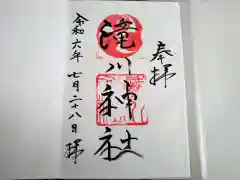 奉拝
滝川神社
令和六年七月二十八日